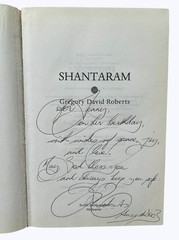 SHANTARAM
Gregory David Roberts
on her birthday,
with wishes of peace, joy,
and love.
May God bless you
and always keep you safe